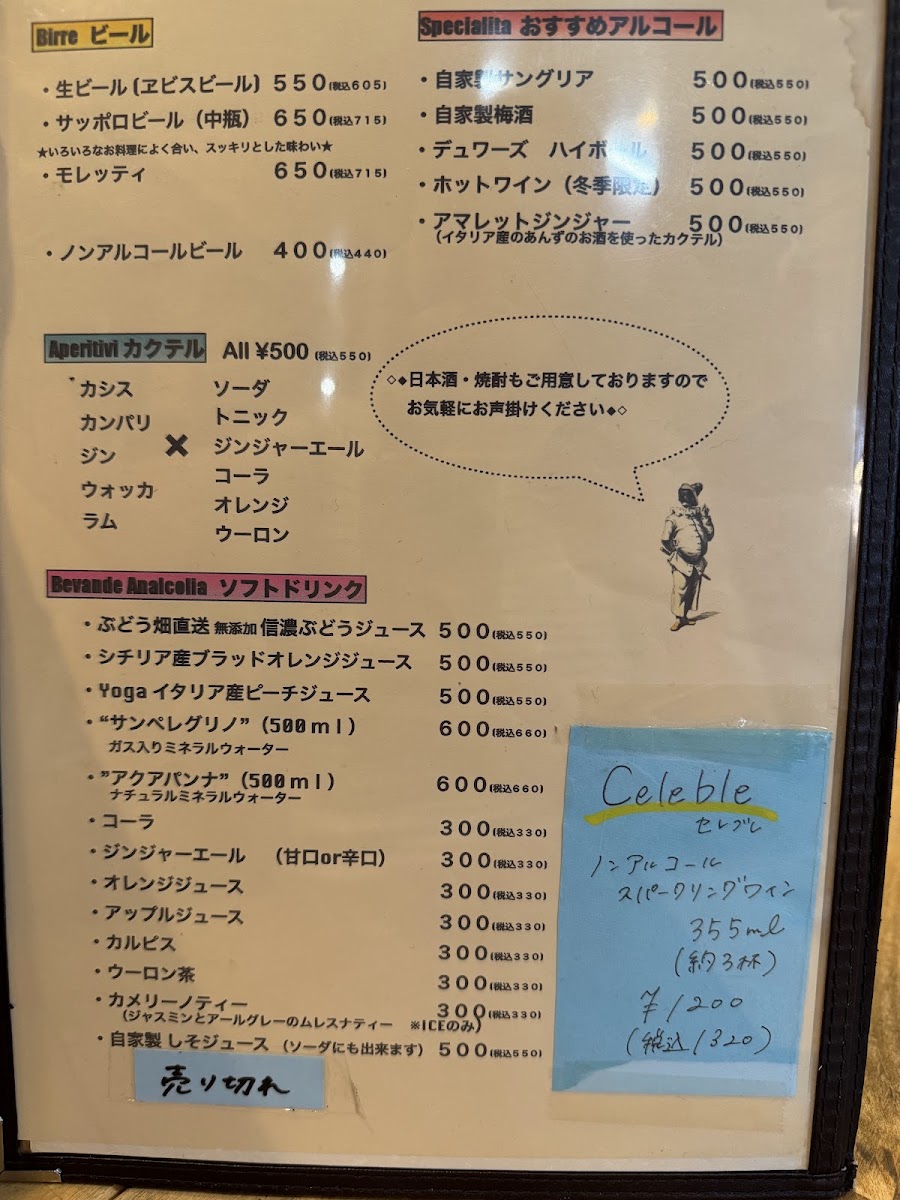 Birre ビール
・生ビール(ヱビスビール) 550(税込605)
・サッポロビール（中瓶） 650(税込715)
★いろいろなお料理によく合い、スッキリとした味わい★
・モレッティ 650(税込715)
・ノンアルコールビール 400(税込440)
Specialita おすすめアルコール
・自家製サングリア 500(税込550)
・自家製梅酒 500(税込550)
・デュワーズ ハイボール 500(税込550)
・ホットワイン（冬季限定） 500(税込550)
・アマレットジンジャー 500(税込550)
（イタリア産のあんずのお酒を使ったカクテル）
Aperitivi カクテル All ¥500 (税込550)
カシス
カンパリ
ジン
ウォッカ
ラム
×
ソーダ
トニック
ジンジャーエール
コーラ
オレンジ
ウーロン
◇◆日本酒・焼酎もご用意しておりますので
お気軽にお声掛けください◆◇
Bevande Analcolia ソフトドリンク
・ぶどう畑直送 無添加 信濃ぶどうジュース 500(税込550)
・シチリア産ブラッドオレンジジュース 500(税込550)
・Yoga イタリア産ピーチジュース 500(税込550)
・“サンペレグリノ”（500ml） 600(税込660)
ガス入りミネラルウォーター
・”アクアパンナ”（500ml） 600(税込660)
ナチュラルミネラルウォーター
・コーラ 300(税込330)
・ジンジャーエール （甘口or辛口） 300(税込330)
・オレンジジュース 300(税込330)
・アップルジュース 300(税込330)
・カルピス 300(税込330)
・ウーロン茶 300(税込330)
・カメリーノティー 300(税込330)
（ジャスミンとアールグレーのムレスナティー ※ICEのみ）
・自家製 しそジュース （ソーダにも出来ます） 500(税込550)
売り切れ
Celeble
セレブレ
ノンアルコール
スパークリングワイン
355ml
(約3杯)
¥1200
(税込1320)